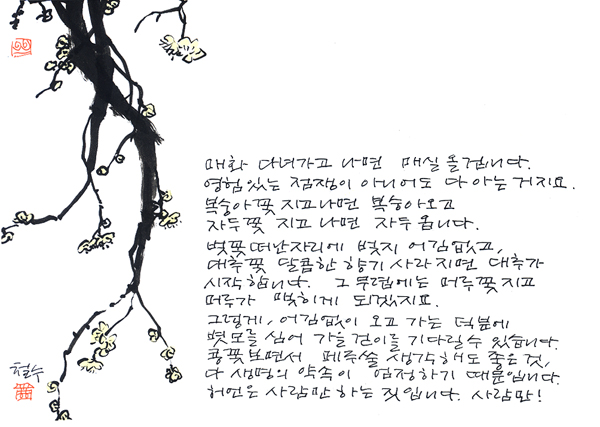 매화 다녀가고 나면 매실 올겁니다.
영험있는 점쟁이 아니어도 다 아는 거지요.
복숭아꽃 지고나면 복숭아오고
자두꽃 지고 나면 자두 옵니다.
벚꽃떠난자리에 벚지 어김없고,
대추꽃 달콤한 향기 사라지면 대추가
시작합니다. 그 무렵에는 머루꽃지고
머루가 맺히게 되겠지요.
그렇게, 어김없이 오고 가는 덕분에
볏모를 심어 가을걷이를 기다릴수 있습니다.
콩꽃보면서 메주쑬 생각해도 좋은 것,
다 생명의 약속이 엄정하기 때문입니다.
허언은 사람만 하는 짓입니다. 사람만!
철수